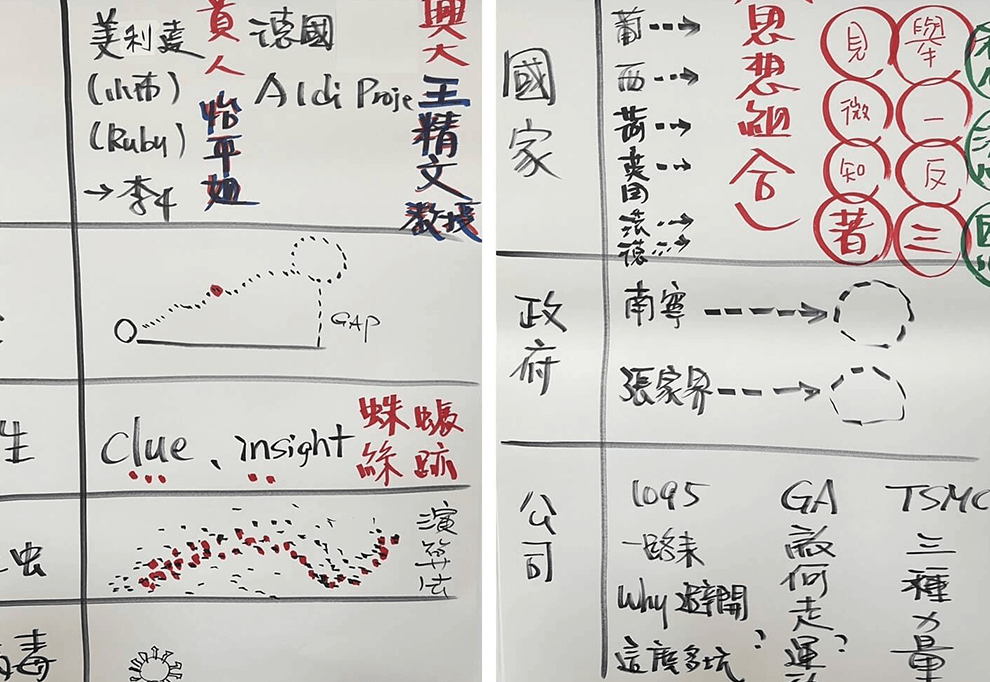 美利堅
(小布)
(Ruby)
→李牛
貴人
怡平姐
德國
Aldi Proje
興大
王精文
教授
GAP
生
clue、insight
蛛絲
蜘跡
虫
演算法
毒
國家
葡
西
荷
英國
法
德
思想組合)
見微知著
舉一反三
政府
南寧
張家界
公司
1095
一路来
Why 避開
這麼多坑?
GA
敵何走運?
TSMC
三種力量